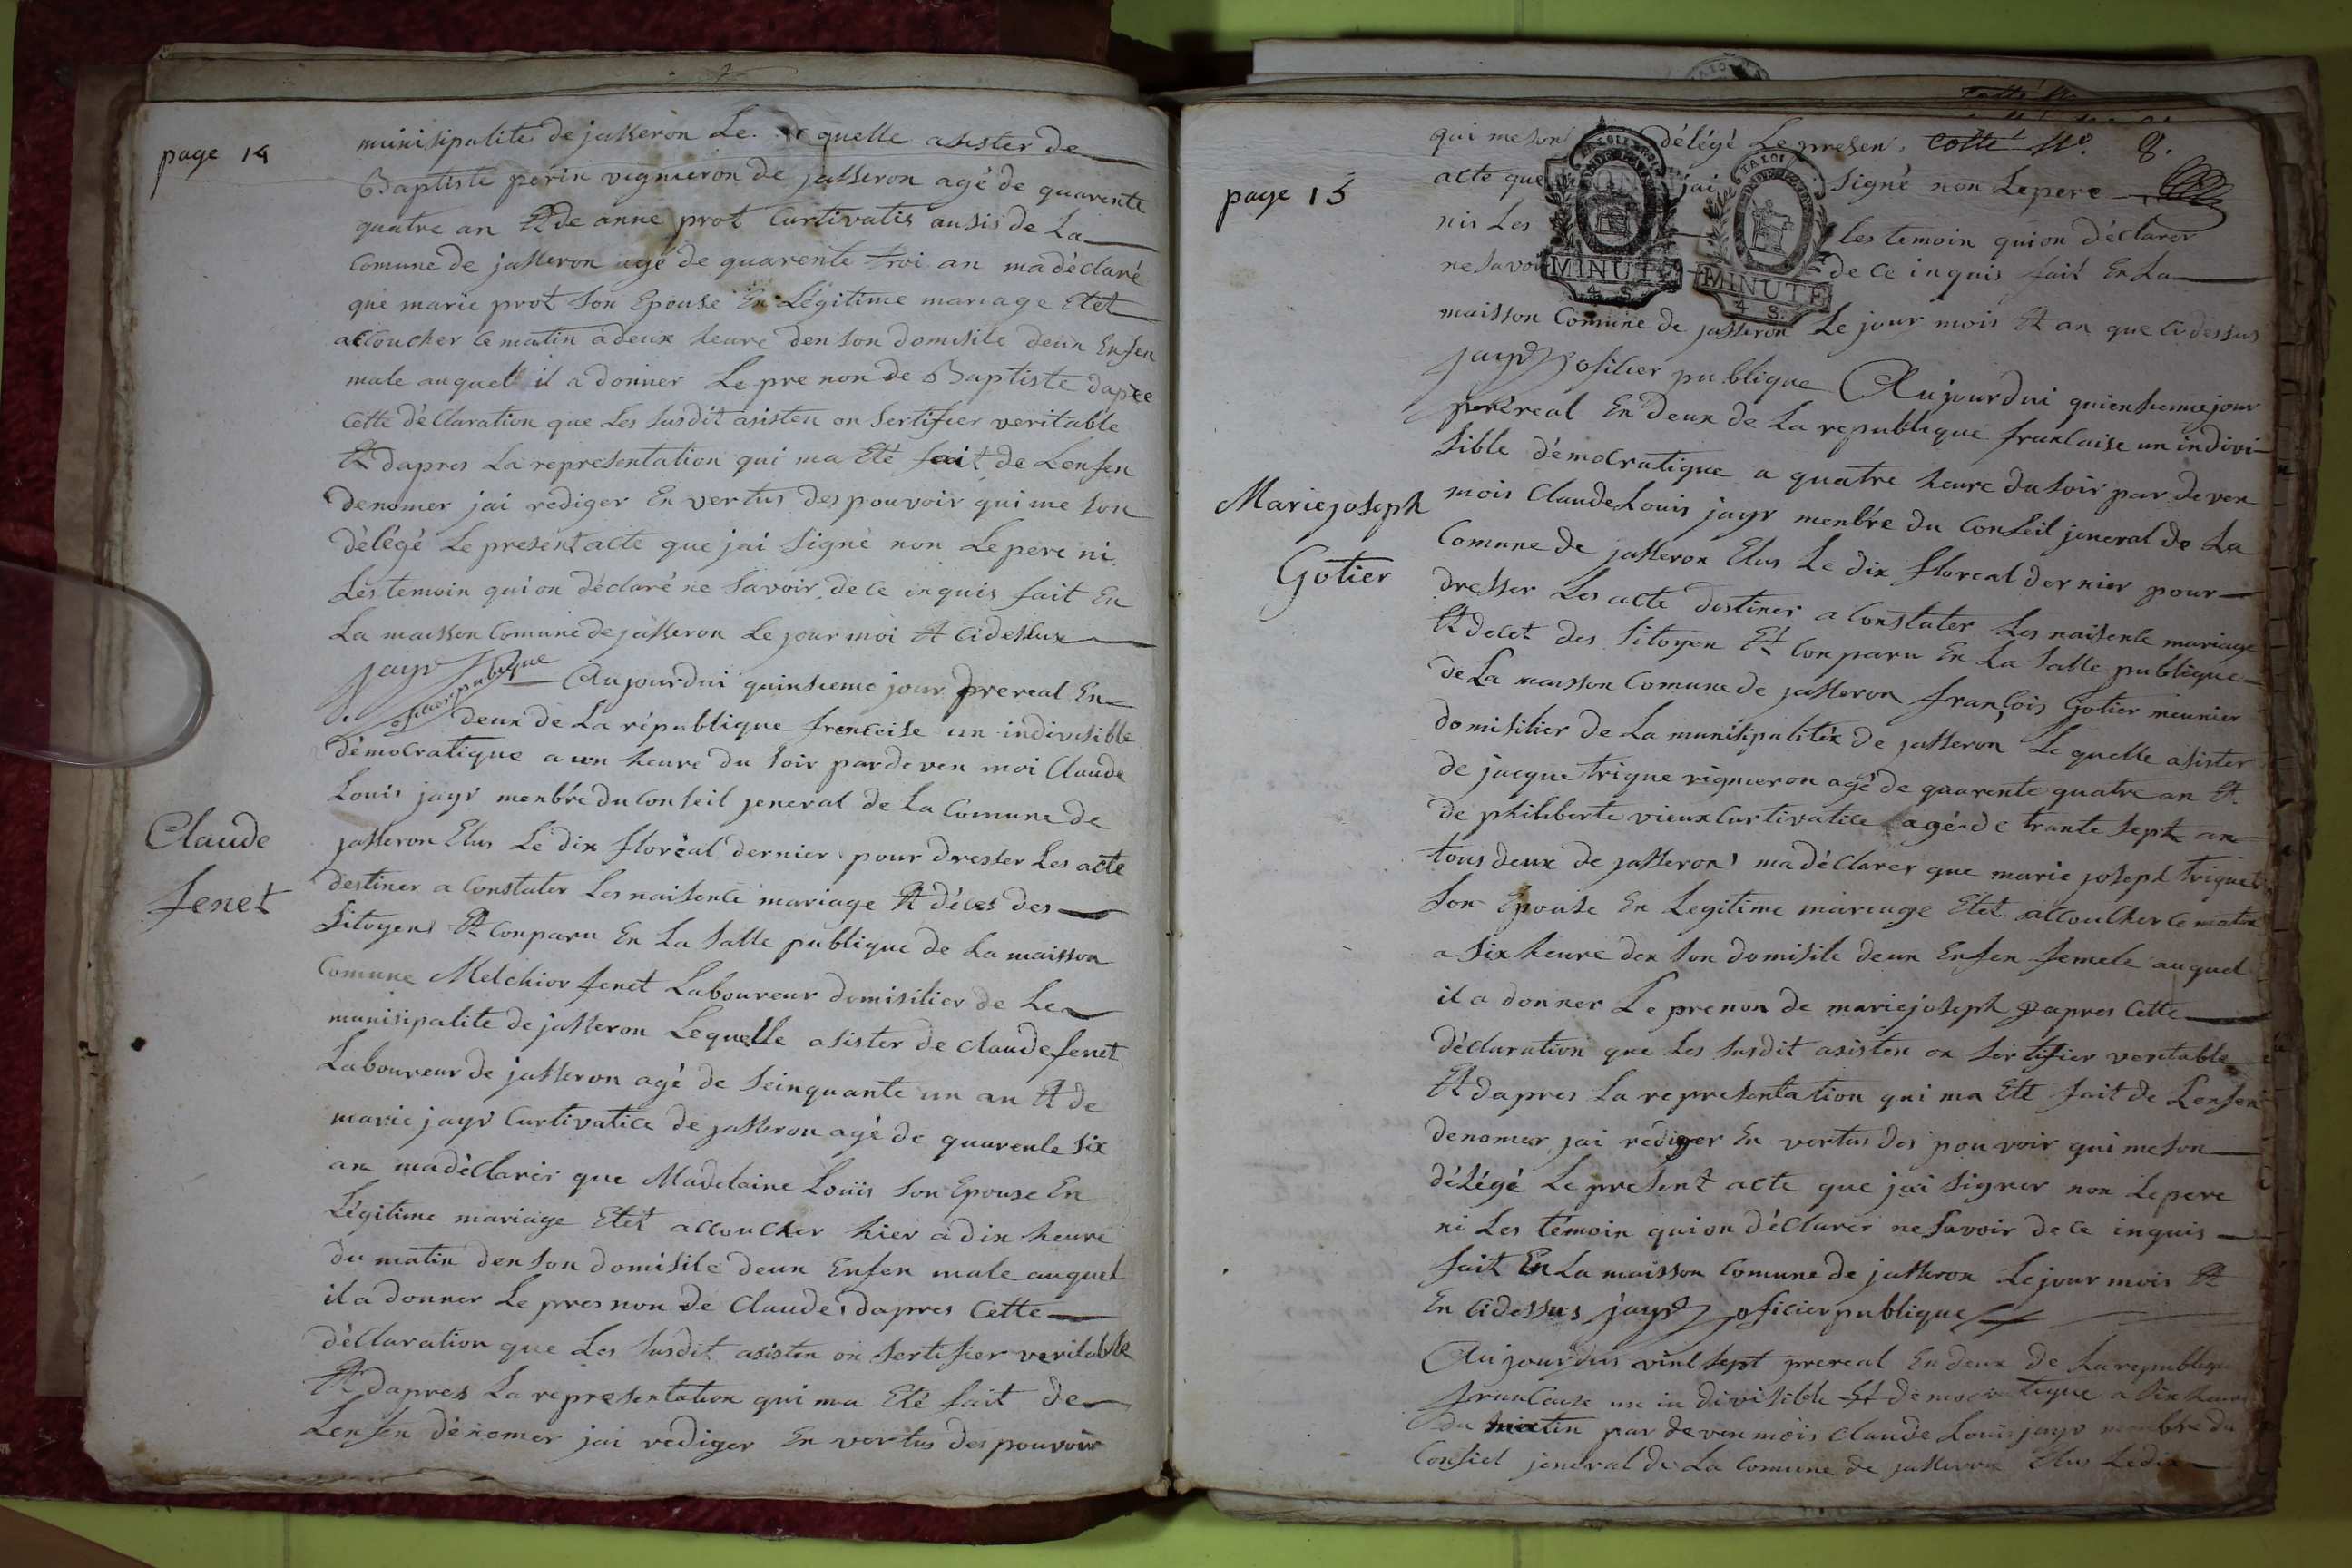 page 14
munisipalite de jasseron Le quelle asister de
Baptiste perin vigneron de jasseron agé de quarente
quatre an Et de anne prot Curtivatis ausis de La
Comune de jasseron agé de quarente troi an madéclaré
que marie prot son Epouse En Légitime mariage Etet
accoucher le matin a deux heure den son domisile deun Enfen
male auquel il a donner Le pre non de Baptiste dapre
Cette déclaration que Les susdit asisten on sertifier veritable
Et dapres La representation qui ma Eté fait de Lenfen
denomer jai rediger En vertus des pouvoir qui me son
délégé Le present acte que jai signé non Le pere ni
Les temoin qui on déclaré ne savoir de ce inquis fait En
La maisson Comune de jasseron Le jour moi Et ci dessux
jayr oficier publique Aujourdui quinsieme jour prereal En
deux de La république frenceise un indivisible
démocratique a un heure du soir par deven moi Claude
Louis jayr menbre du Conseil jeneral de La Comune de
Claude
fenet
jasseron Elus Le dix floréal dernier pour dresser Les acte
destiner a Constater Les naisence mariage Et déces des
sitoyens Et Conparu En La salle publique de La maisson
Comune Melchior fenet Laboureur domisilier de Le
munisipalite de jasseron Lequelle asister de claude fenet
Laboureur de jasseron agé de seinquante un an Et de
marie jayr Curtivatice de jasseron agé de quarente six
an madéclarér que Madelaine Louis son Epouse En
Légitime mariage Etet accoucher hier a dix heure
du matin den son domisile deun Enfen male auquel
il a donner Le pres non de Claude dapres Cette
déclaration que Les susdit asisten on sertifier veritable
Et dapres La representation qui ma Eté fait de
Lenfen dénomer jai rediger En vertus des pouvoir
page 15
qui me son délégé Le presen Cotté N.º 8.
acte que jai signé non Le pere
nis Les les temoin qui on déclarer
ne savoir de ce inquis fait En La
MINUTE
4 S.
MINUTE
4 S.
maisson Comune de jasseron Le jour mois Et an que ci dessus
jayr oficier publique Aujourdui quiensieme jour
prereal En Deux de La republique francaise un indivi
sible démocratique a quatre heure du soir par de ven
mois Claude Louis jayr menbre du Conseil jeneral de La
Marie joseph
Gotier
Comune de jasseron Elus Le dix floreal dernier pour
dresser Les acte destiner a Constater Les naisence mariage
Et decet des sitoyen Et Conparu En La salle publique
de La maisson Comune de jasseron françois Gotier meunier
domisilier de La munisipalitéx de jasseron Le quelle asister
de jacque trique vigneron agé de quarente quatre an Et
de philiberte vieux Curtivatice agé de trante sept an
tous deux de jasseron madéclarer que marie joseph triquet
son Epouse En Legitime mariage Etet accoucher le matin
a six heure den son domisile deun Enfen femele auquel
il a donner Le prenon de marie joseph dapres Cette
déclaration que Les susdit asisten on sertifier veritable
Et dapres La representation qui ma Eté fait de Lenfen
denomer jai rediger En vertus des pouvoir qui me son
délégé Le present acte que jai signer non Le pere
ni Les témoin qui on déclarer ne savoir de ce inquis
fait En La maisson Comune de jasseron Le jour mois Et
En ci dessus jayr oficier publique
Aujourdui vint sept prereal En deux de La republique
francaise une indivisible Et démocratique a six heure
du matin par deven mois claude Louis jayr menbre du
Consiel jeneral de La Comune de jasseron Elus Le dix